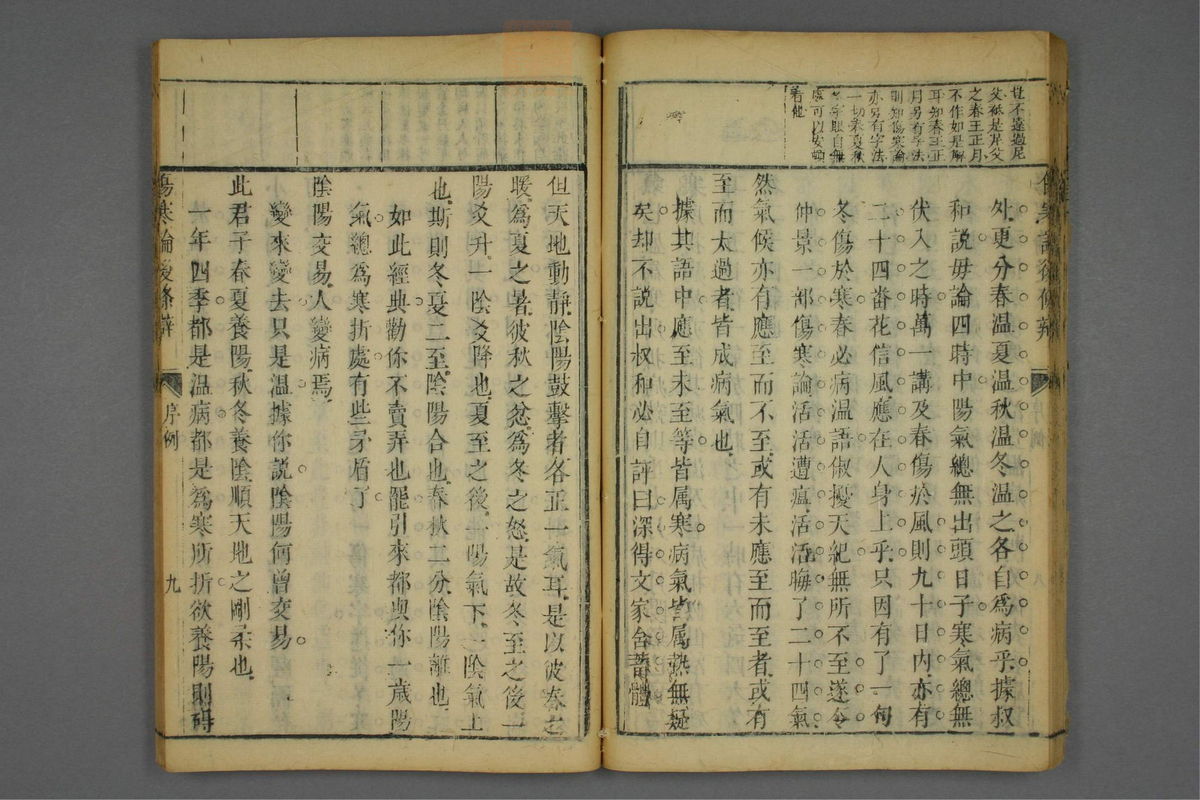 豈不達過尼
父祇是斧父
之春王正月
不作如是解
耳知春王正
月另有字法
則知傷寒論
亦另有字法
一切春夏秋
冬字眼自無
處可以安頓
看他
外更分春温夏温秋温冬温之各自為病乎據叔
和說毋論四時中陽氣總無出頭日子寒氣總無
伏入之時萬一講及春傷於風則九十日内亦有
二十四番花信風應在人身上乎只因有了一句
冬傷於寒春必病温語俶擾天紀無所不至遂令
仲景一部傷寒論活活遭瘟活活晦了二十四氣
然氣候亦有應至而不至或有未應至而至者或有
至而太過者皆成病氣也
據其語中應至未至等皆属寒病氣皆属熱無疑
矣却不說出叔和必自評曰深得文家含蓄體
但天地動靜陰陽鼓擊者各正一氣耳是以彼春之
暖為夏之暑彼秋之忿為冬之怒是故冬至之後一
陽爻升一陰爻降也夏至之後一陽氣下一陰氣上
也斯則冬夏二至陰陽合也春秋二分陰陽離也
如此經典勸你不賣弄也罷引來都與你一歲陽
氣總為寒折處有些矛盾了
陰陽交易人變病焉
變來變去只是温據你説陰陽何曾交易
此君子春夏養陽秋冬養陰順天地之剛柔也
一年四季都是温病都是為寒所折欲養陽則碍
傷寒論後條辨
序例
九